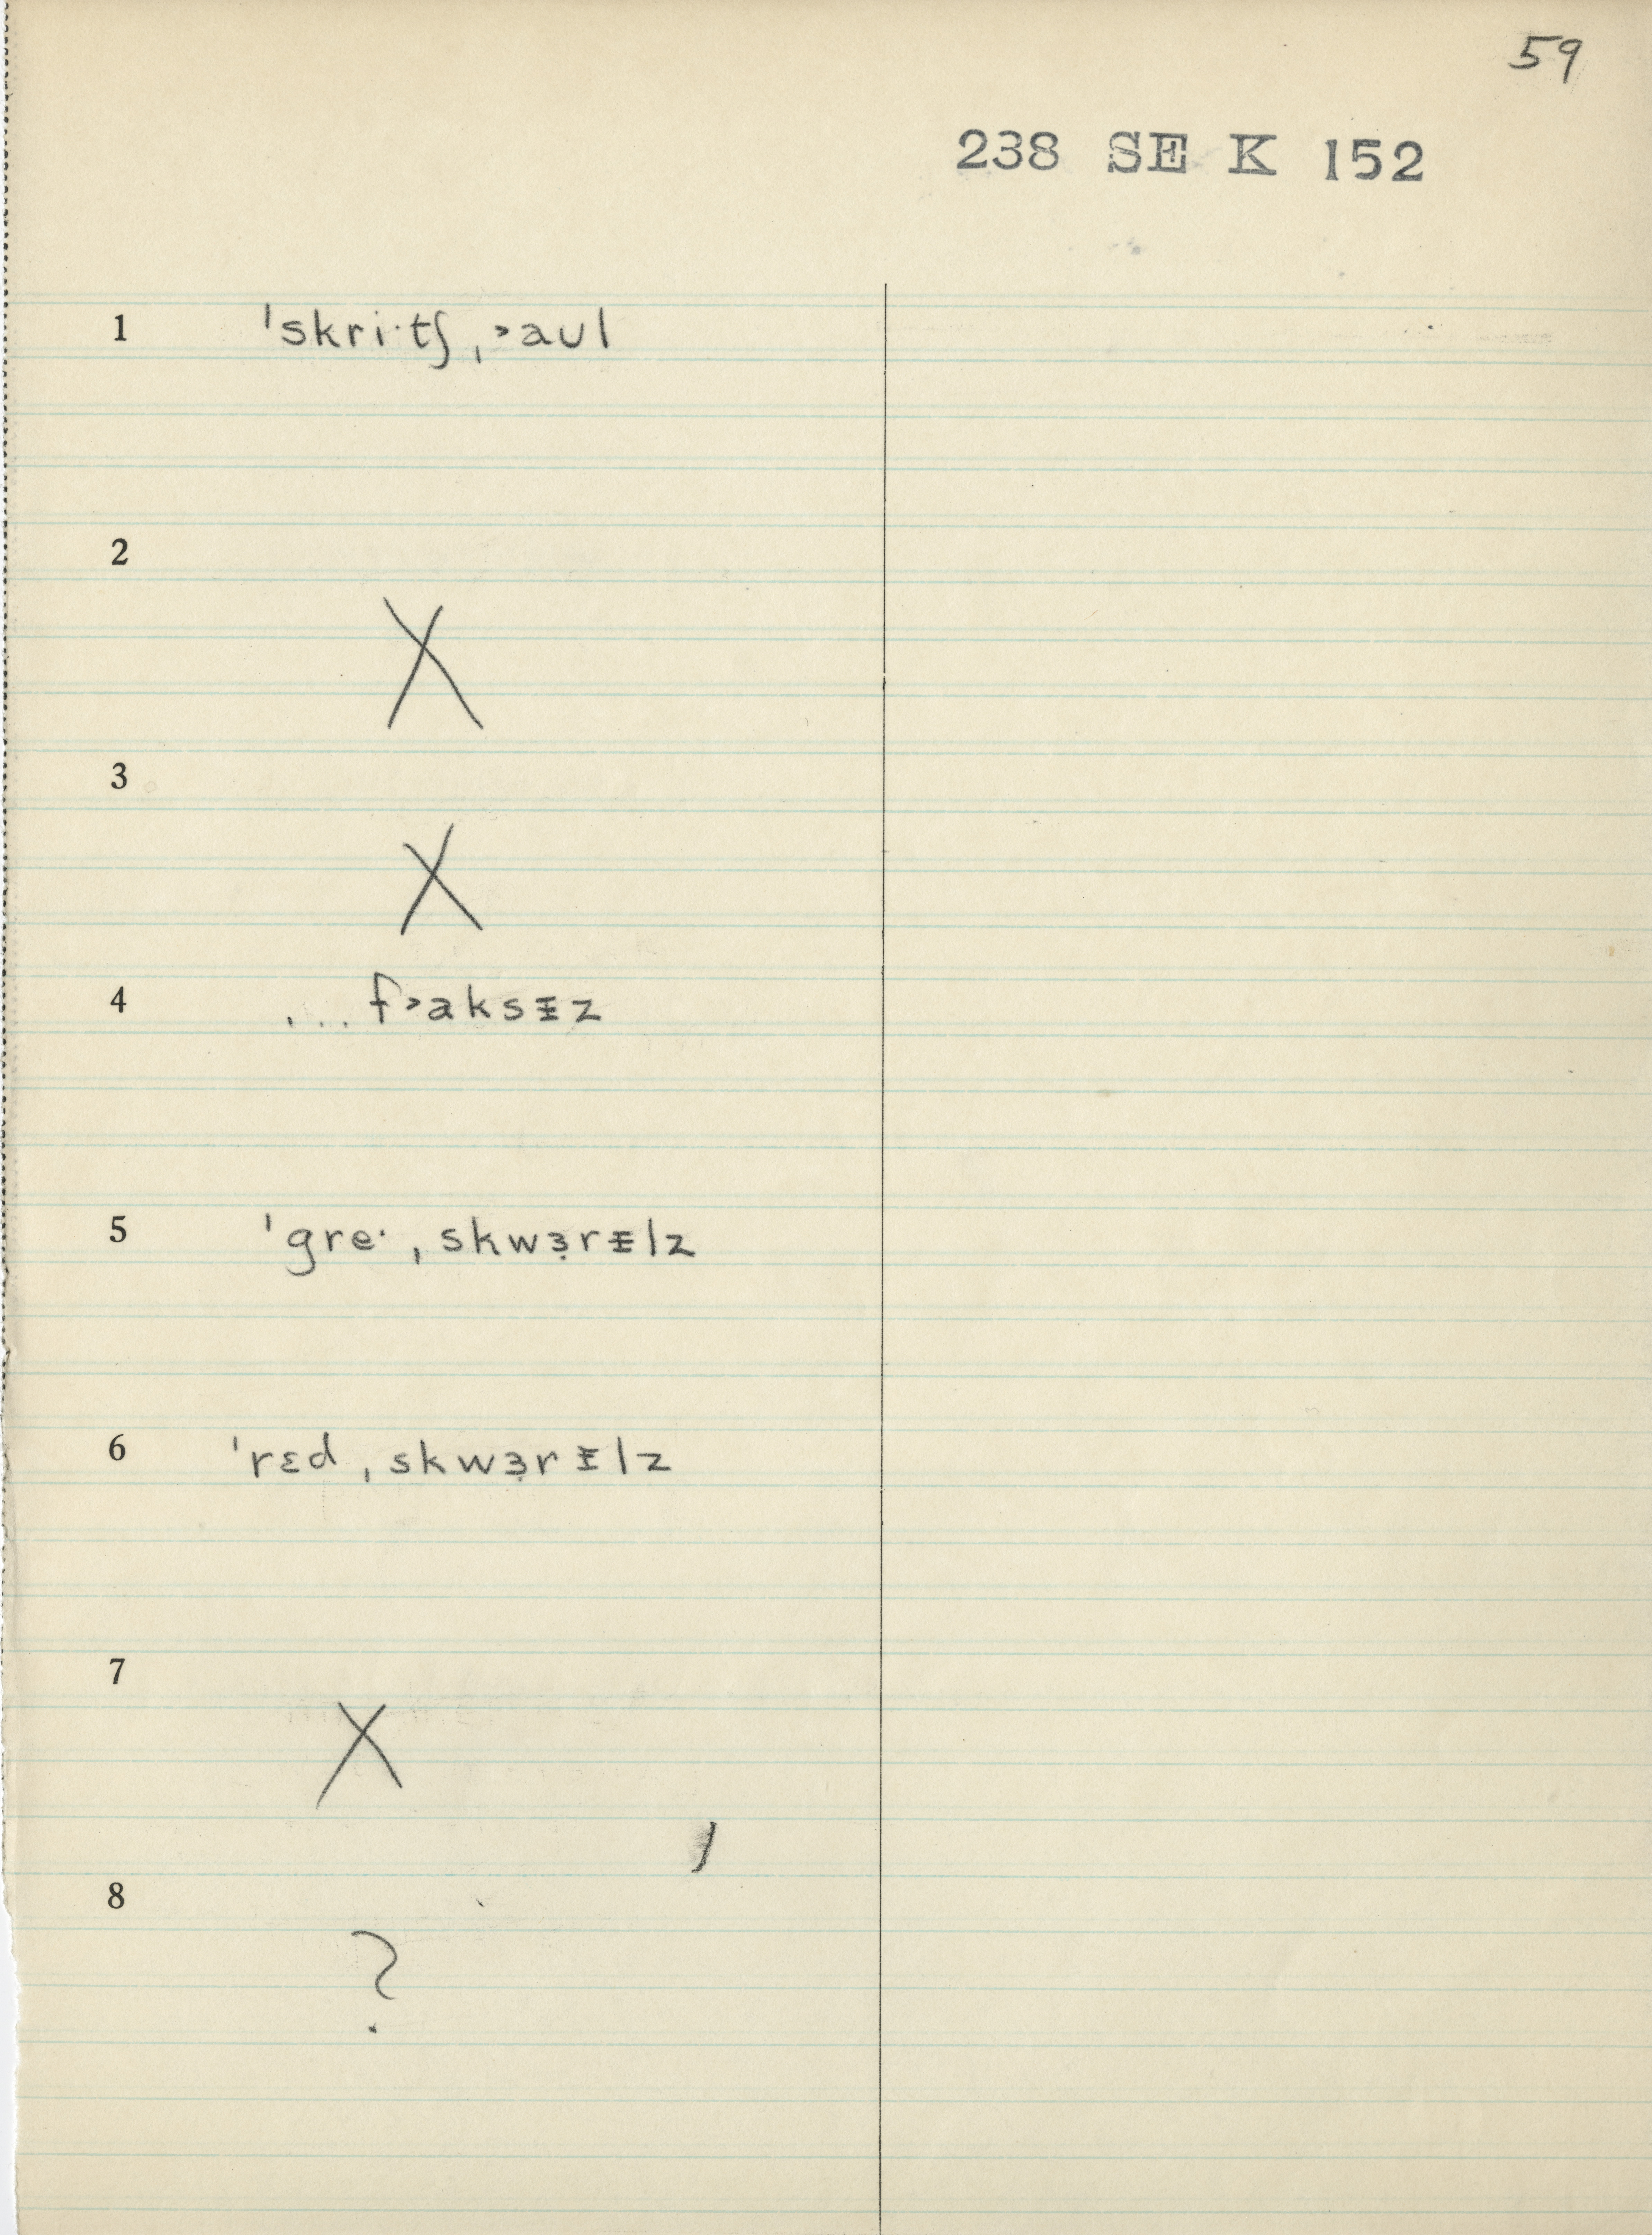 59
238 SE K 152
1 ˈskri·tʃ ˌ˃aʊl
2 X
3 X
4 ... f˃aksᵻz
5 ˈgre· ˌskwɜ̣rᵻlz
6 ˈrɛd ˌskwɜ̣rᵻlz
7 X
8 ?